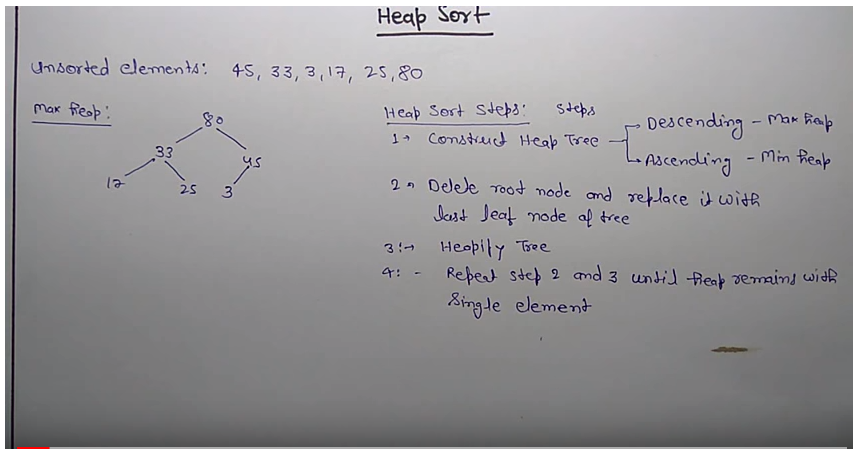 Heap Sort
Unsorted elements: 45, 33, 3, 17, 25, 80
Max Heap:
80
33 45
17 25 3
Heap Sort Steps: Steps
1→ Construct Heap Tree
Descending - Max heap
Ascending - Min heap
2→ Delete root node and replace it with
last leaf node of tree
3:→ Heapify Tree
4: - Repeat step 2 and 3 until heap remains with
Single element